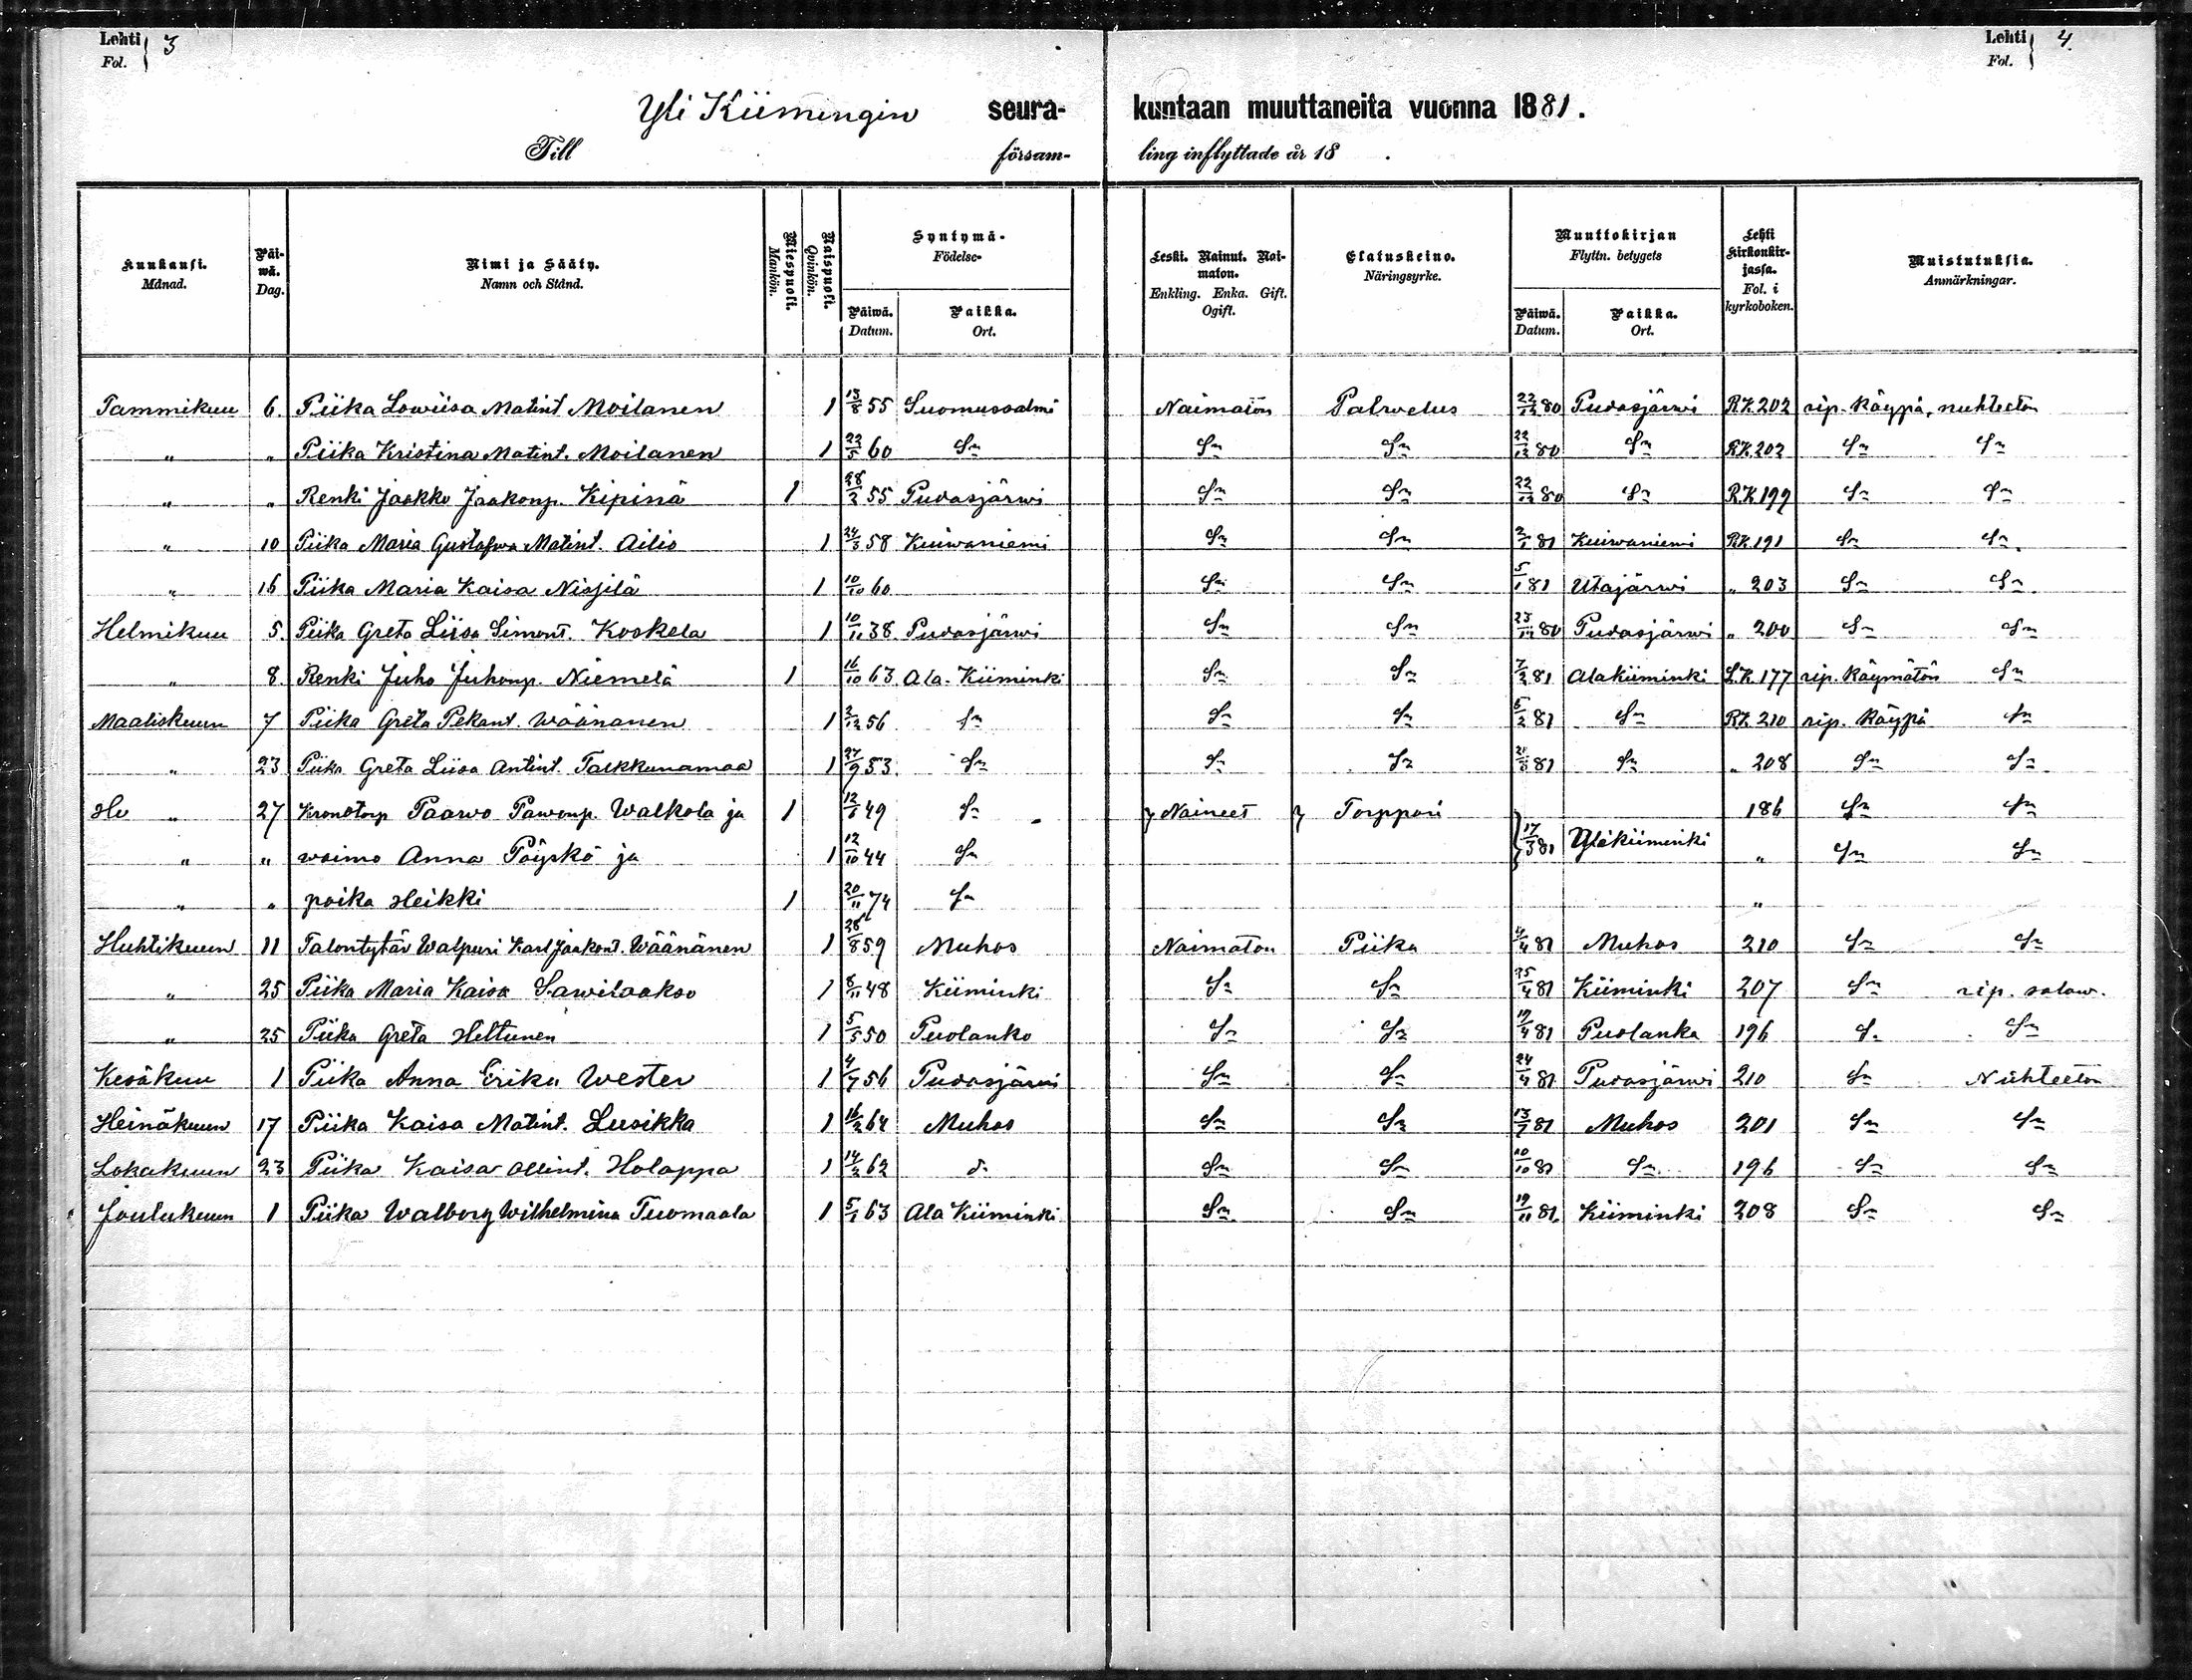 Lehti 3 Lehti 4
Fol. Fol.
Yli Kiimingin seura- kuntaan muuttaneita vuonna 1881.
Till försam- ling inflyttade år 18 .
Kuukausi. Månad. Päi-wä. Dag. Nimi ja Sääty. Namn och Stånd. Miespuoli. Mankön. Naispuoli. Qvinkön. Syntymä- Födelse- Päiwä. Datum. Paikka. Ort. Leski. Nainut. Nai-maton. Enkling. Enka. Gift. Ogift. Elatuskeino. Näringsyrke. Muuttokirjan Flyttn. betygets Päiwä. Datum. Paikka. Ort. Lehti Kirkonkir-jassa. Fol. i kyrkoboken. Muistutuksia. Anmärkningar.
Tammikuu 6. Piika Lowiisa Matint Moilanen 1 13/8 55 Suomussalmi Naimatön Palwelus 22/12 80 Pudasjärwi RK. 202 rip. käypä, nuhteetön
" " Piika Kristina Matint. Moilanen 1 22/5 60 Sm Sm Sm 22/12 80 Sm RK. 202 Sm Sm
" " Renki Jaakko Jaakonp. Kipinä 1 28/2 55 Pudasjärwi Sm Sm 22/12 80 Sm RK. 199 Sm Sm
" 10 Piika Maria Gustafwa Matint. Ailio 1 24/3 58 Kuiwaniemi Sm Sm 2/1 81 Kuiwaniemi RK. 191 Sm Sm
" 16 Piika Maria Kaisa Nissilä 1 10/10 60 Sm Sm 5/1 81 Utajärwi " 203 Sm Sm
Helmikuu 5. Piika Greta Liisa Simont. Koskela 1 10/11 38 Pudasjärwi Sm Sm 23/12 80 Pudasjärwi " 200 Sm Sm
" 8. Renki Juho Juhonp. Niemelä 1 16/10 63 Ala-Kiiminki Sm Sm 7/2 81 Alakiiminki L.K. 177 rip. käymätön Sm
Maaliskuun 7 Piika Greta Pekant. Wäänänen 1 2/12 56 Sm Sm Sm 5/2 81 Sm RK. 210 rip. käypä Sm
" 23 Piika Greta Liisa Antint. Tarkkunamaa 1 27/9 53. Sm Sm Sm 21/3 81 Sm " 208 Sm Sm
" 27 Kronotorp Paawo Pawonp. Walkola ja 1 12/5 49 Sm Naineet Torppari 186 Sm Sm
" " waimo Anna Pöyskö ja 1 12/10 44 Sm 17/3 81 Ylikiiminki " Sm Sm
" " poika Heikki 1 20/11 74 Sm "
Huhtikuun 11 Talontytär Walpuri Karl Jaakont. Wäänänen 1 28/8 59 Muhos Naimatön Piika 4/4 81 Muhos 210 Sm Sm
" 25 Piika Maria Kaisa Sawilaakso 1 8/11 48 Kiiminki Sm Sm 25/4 81 Kiiminki 207 Sm rip. salaw.
" 25 Piika Greta Heltunen 1 5/5 50 Puolanko Sm Sm 19/4 81 Puolanka 196 S. Sm
Kesäkuu 1 Piika Anna Erika Wester 1 4/7 56 Pudasjärwi Sm Sm 24/4 81 Pudasjärwi 210 Sm Nuhteetön
Heinäkuun 17 Piika Kaisa Matint. Lusikka 1 16/2 64 Muhos Sm Sm 13/7 81 Muhos 201 Sm Sm
Lokakuun 23 Piika Kaisa Ollint. Holappa 1 14/2 62 d. Sm Sm 10/10 81 Sm 196 Sm Sm
Joulukuun 1 Piika Walborg Wilhelmina Tuomaala 1 5/1 63 Ala Kiiminki Sm Sm 19/11 81. Kiiminki 208 Sm Sm